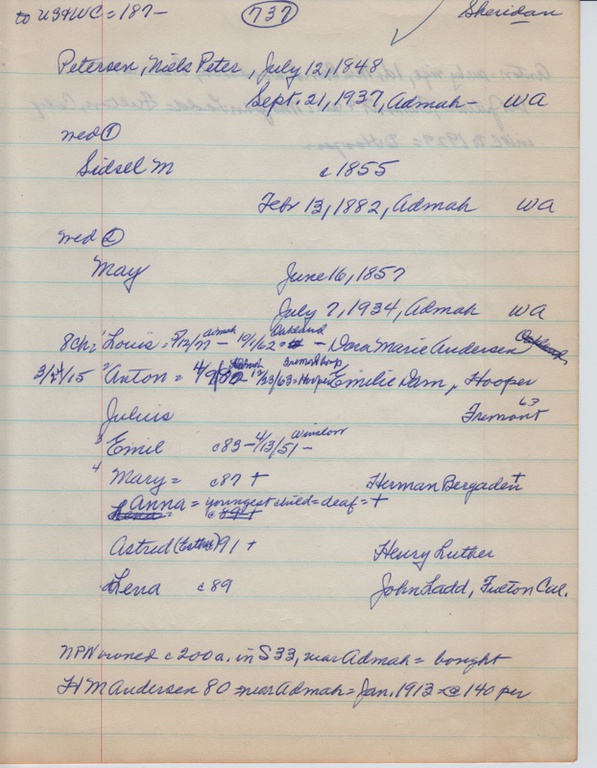 to US+WC = 187- 737 Sheridan
Petersen, Niels Peter, July 12, 1848
Sept. 21, 1937, Admah - WA
med ①
Sidsel M c 1855
Febr 13, 1882, Admah WA
med ②
May June 16, 1857
July 7, 1934, Admah WA
8Ch: ' Louis = 5/12/77 Admah - 10/1/62 = Oakland - Dora Marie Andersen Oakland
3/24/15 Anton = 4/9/80 Admah - 12/33/63 = Hooper Emilie Dam, Hooper
Julius Fremont 63
3 Emil c 83 - 4/13/51 - Winslow
4 Mary = c 87 + Herman Bergadett
Anna = youngest child = deaf = +
c 89 +
Astrid (Esther) 91 + Henry Luther
Lena c 89 John Ladd, Fulton Cal.
NPN owned c 200 a. in S 33, near Admah = bought
H M Andersen 80 near Admah = Jan. 1913 - @ 140 per